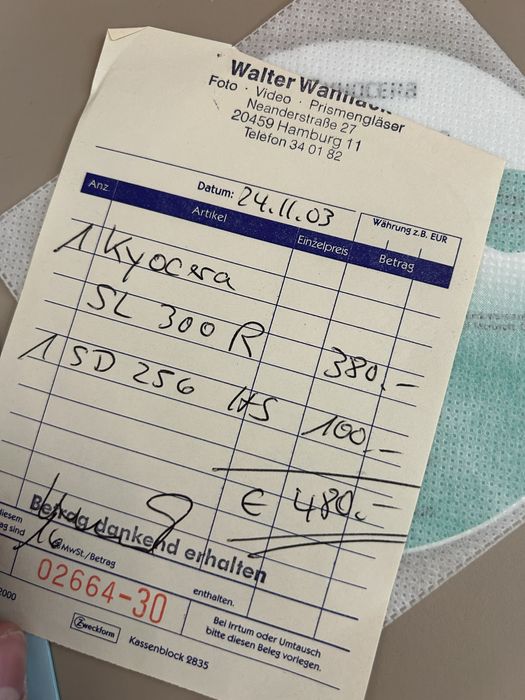 KYOCERA
Walter
Foto · Video · Prismengläser
Neanderstraße 27
20459 Hamburg 11
Telefon 34 01 82
Datum: 24.11.03
Währung z.B. EUR
Anz. Artikel Einzelpreis Betrag
1 Kyocera
SL 300 R 380,-
1 SD 256 100,-
€ 480,-
Betrag dankend erhalten
diesem
sind 16 MwSt./Betrag
enthalten.
02664-30
Bei Irrtum oder Umtausch
bitte diesen Beleg vorlegen.
2000
Zweckform Kassenblock 2835